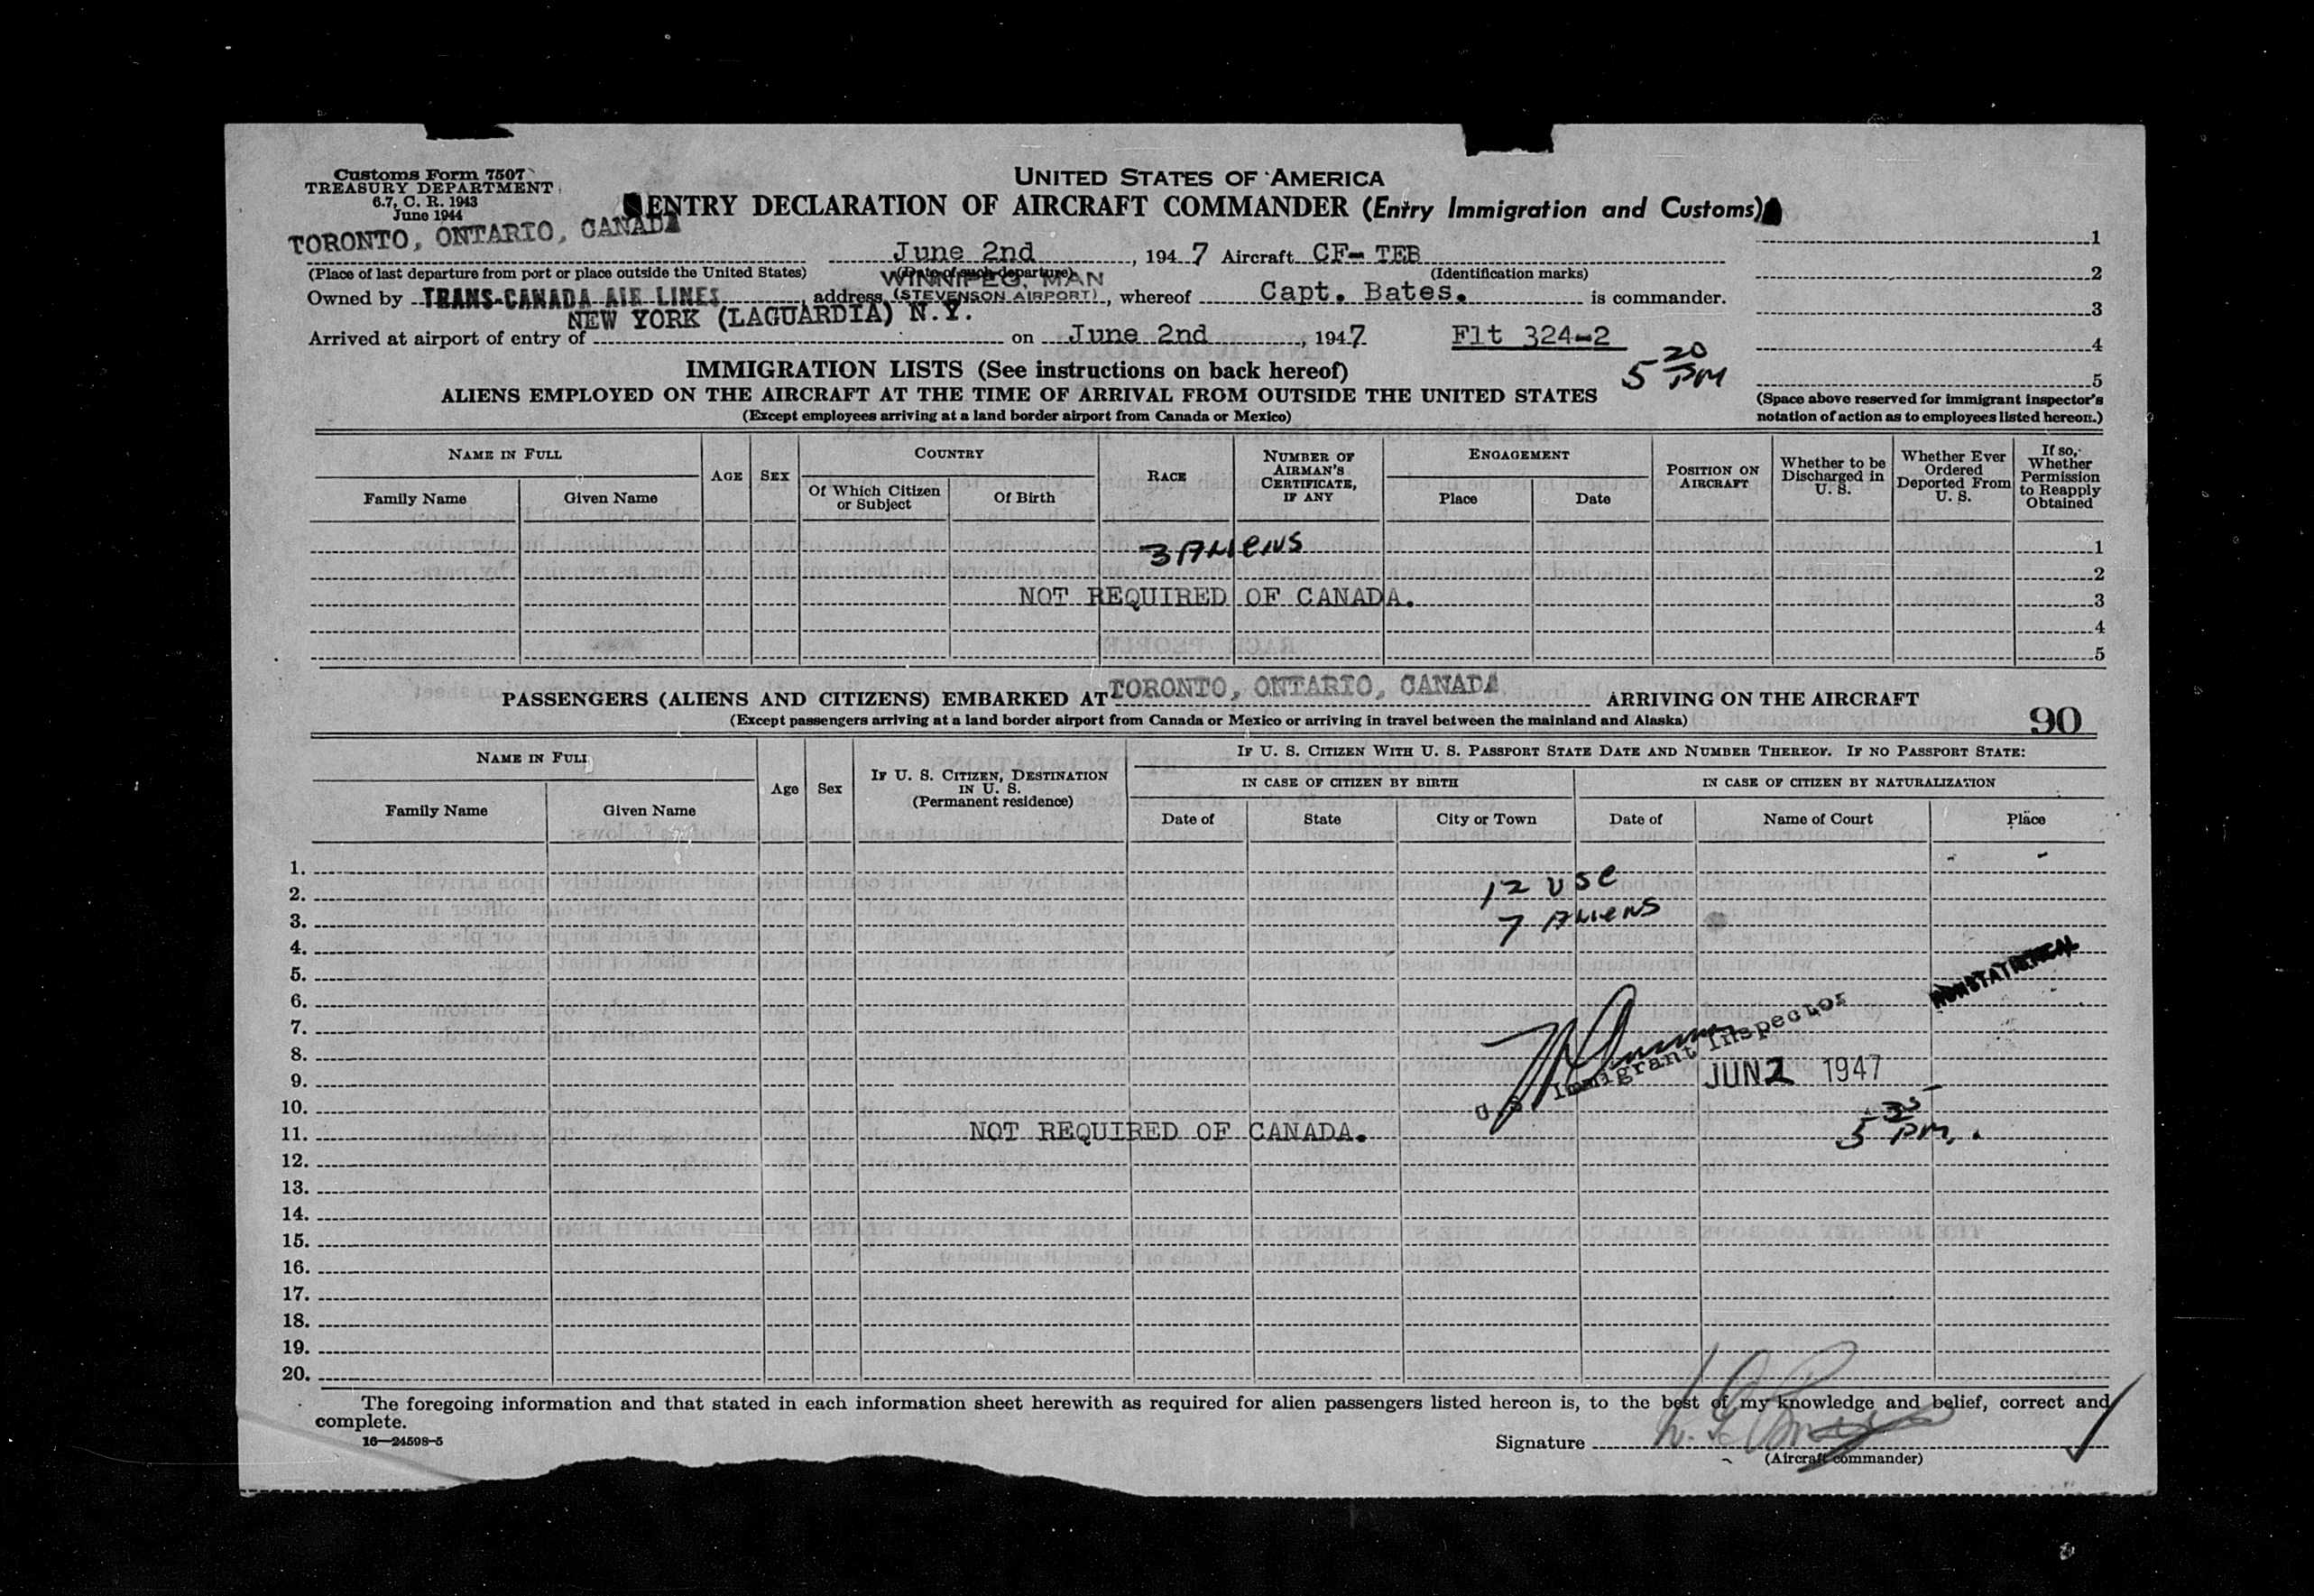 Customs Form 7507
TREASURY DEPARTMENT
6.7, C. R. 1943
June 1944
UNITED STATES OF AMERICA
ENTRY DECLARATION OF AIRCRAFT COMMANDER (Entry Immigration and Customs)
TORONTO, ONTARIO, CANADA June 2nd, 1947 Aircraft CF- TEB
(Place of last departure from port or place outside the United States) (Date of such departure) (Identification marks)
WINNIPEG, MAN
Owned by TRANS-CANADA AIR LINES, address (STEVENSON AIRPORT), whereof Capt. Bates. is commander.
Arrived at airport of entry of NEW YORK (LAGUARDIA) N.Y. on June 2nd, 1947 Flt 324-2
5 20 PM
1
2
3
4
5
(Space above reserved for immigrant inspector's notation of action as to employees listed hereon.)
IMMIGRATION LISTS (See instructions on back hereof)
ALIENS EMPLOYED ON THE AIRCRAFT AT THE TIME OF ARRIVAL FROM OUTSIDE THE UNITED STATES
(Except employees arriving at a land border airport from Canada or Mexico)
NAME IN FULL
Family Name Given Name
AGE SEX
COUNTRY
Of Which Citizen or Subject Of Birth
RACE
NUMBER OF AIRMAN'S CERTIFICATE, IF ANY
ENGAGEMENT
Place Date
POSITION ON AIRCRAFT
Whether to be Discharged in U. S.
Whether Ever Ordered Deported From U. S.
If so, Whether Permission to Reapply Obtained
3 ALIENS 1
2
NOT REQUIRED OF CANADA. 3
4
5
PASSENGERS (ALIENS AND CITIZENS) EMBARKED AT TORONTO, ONTARIO, CANADA ARRIVING ON THE AIRCRAFT
(Except passengers arriving at a land border airport from Canada or Mexico or arriving in travel between the mainland and Alaska)
90
NAME IN FULL
Family Name Given Name
Age Sex
IF U. S. CITIZEN, DESTINATION IN U. S.
(Permanent residence)
IF U. S. CITIZEN WITH U. S. PASSPORT STATE DATE AND NUMBER THEREOF. IF NO PASSPORT STATE:
IN CASE OF CITIZEN BY BIRTH IN CASE OF CITIZEN BY NATURALIZATION
Date of State City or Town Date of Name of Court Place
1.
2. 12 USC
3. 7 ALIENS
4.
5.
6.
7.
8. U. S. Immigrant Inspector
9. JUN 2 1947
10.
11. NOT REQUIRED OF CANADA. 5 PM.
12.
13.
14.
15.
16.
17.
18.
19.
20.
The foregoing information and that stated in each information sheet herewith as required for alien passengers listed hereon is, to the best of my knowledge and belief, correct and
complete.
16—24598-5
Signature
(Aircraft commander)